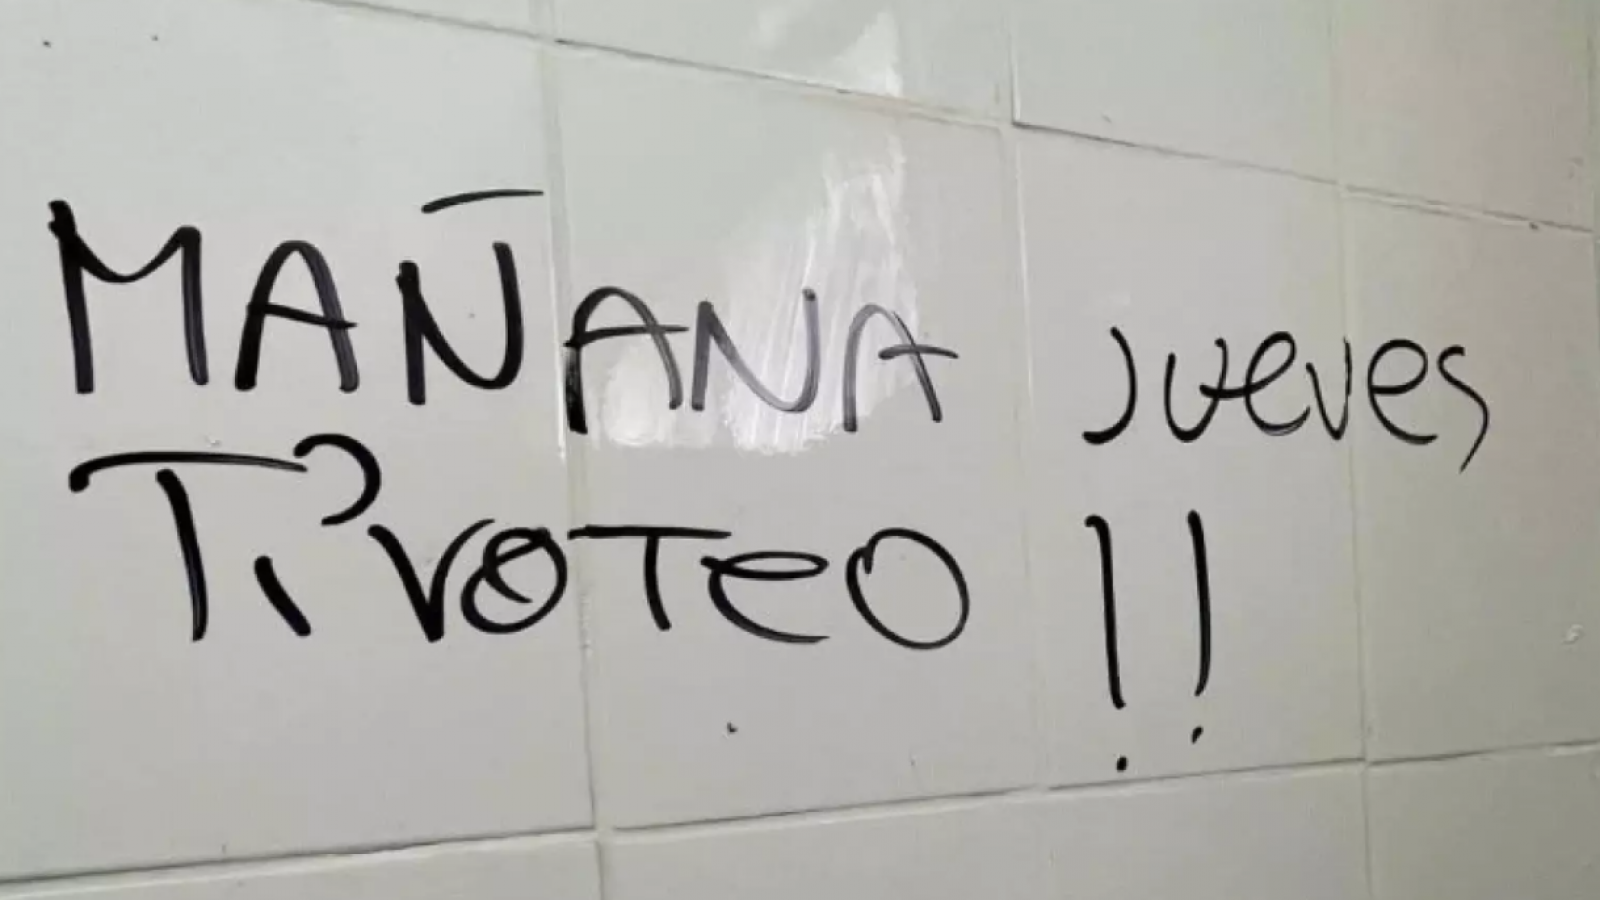 MAÑANA Jueves
Ti?voteo !!